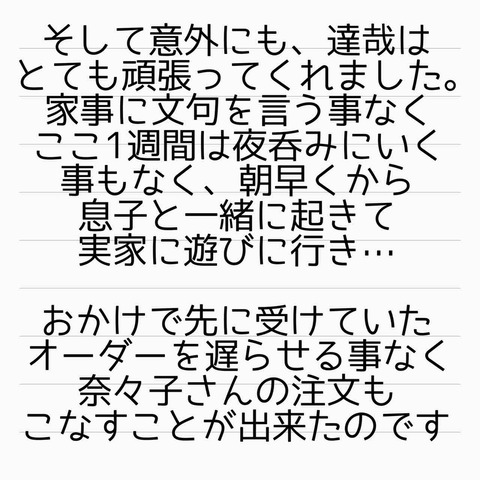 そして意外にも、達哉は
とても頑張ってくれました。
家事に文句を言う事なく
ここ1週間は夜呑みにいく
事もなく、朝早くから
息子と一緒に起きて
実家に遊びに行き…
おかげで先に受けていた
オーダーを遅らせる事なく
奈々子さんの注文も
こなすことが出来たのです